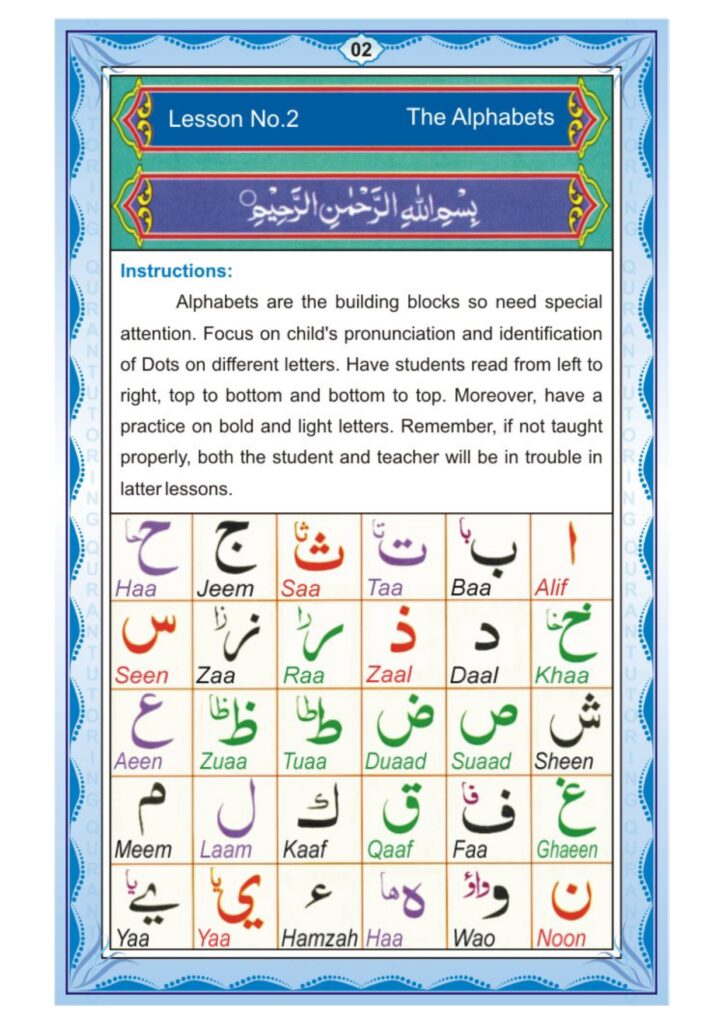 02
Lesson No.2 The Alphabets
بِسْمِ اللهِ الرَّحْمٰنِ الرَّحِيْمِ
Instructions:
Alphabets are the building blocks so need special
attention. Focus on child's pronunciation and identification
of Dots on different letters. Have students read from left to
right, top to bottom and bottom to top. Moreover, have a
practice on bold and light letters. Remember, if not taught
properly, both the student and teacher will be in trouble in
latter lessons.
ا ب با ت تا ث ثا ج ح حا
Haa Jeem Saa Taa Baa Alif
خ خا د ذ ر را ز زا س
Seen Zaa Raa Zaal Daal Khaa
ش ص ض ط طا ظ ظا ع
Aeen Zuaa Tuaa Duaad Suaad Sheen
غ ف فا ق ك ل م
Meem Laam Kaaf Qaaf Faa Ghaeen
ن و واؤ ہ ھا ء ي يا ے يا
Yaa Yaa Hamzah Haa Wao Noon